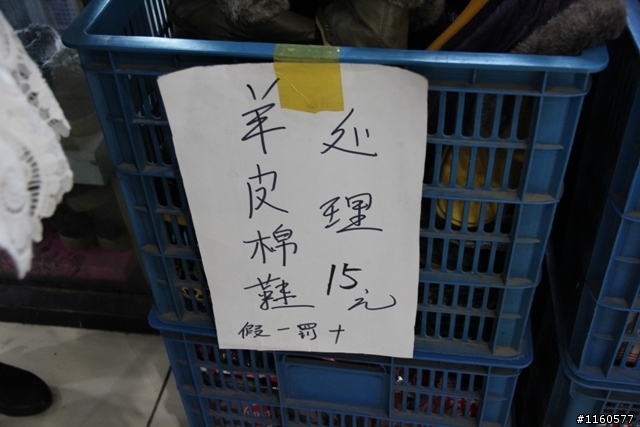 处理15元
羊皮棉鞋
假一罚十
#1160577